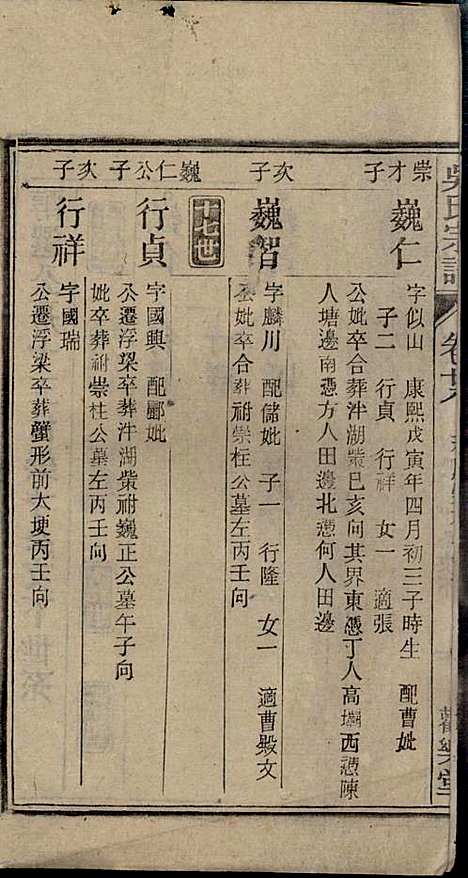 吳氏宗譜
卷廿八
崇才子
巍仁
字似山 康熙戊寅年四月初三子時生 配曹妣
子二 行貞 行祥 女一 適張
公妣卒合葬泮湖柴巳亥向其界東憑丁人高塥西憑陳
人塘邊南憑方人田邊北憑何人田邊
次子
巍智
字麟川 配儲妣 子一 行隆 女一 適曹毅文
公妣卒合葬祔崇柱公墓左丙壬向
十七世
巍仁公子
行貞
字國興 配鄺妣
公遷浮梁卒葬汼湖柴祔巍正公墓午子向
妣卒葬祔崇柱公墓左丙壬向
次子
行祥
字國瑞
公遷浮梁卒葬蟹形前大埂丙壬向